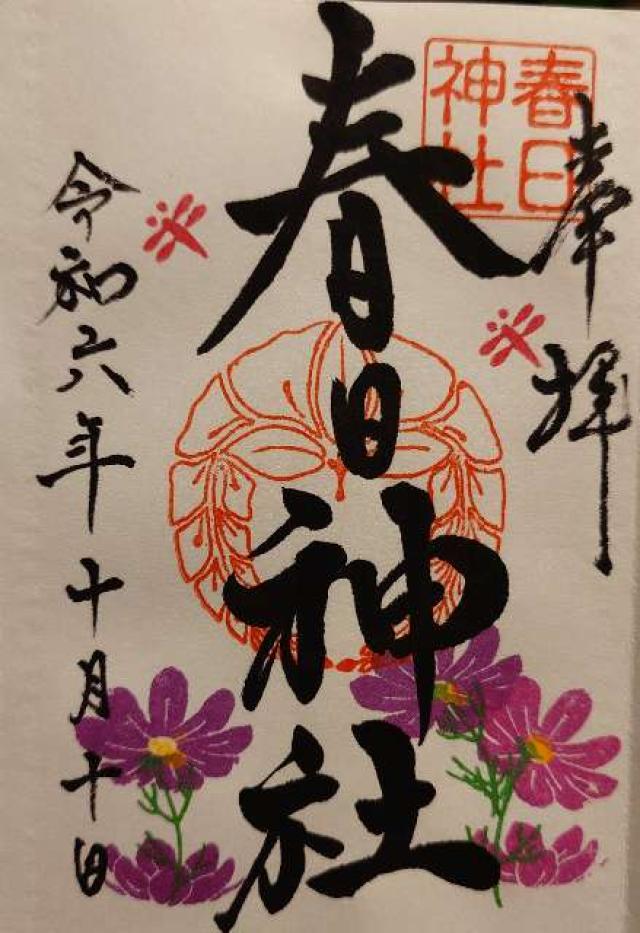 奉拝
春日神社
春日神社
令和六年十月十日